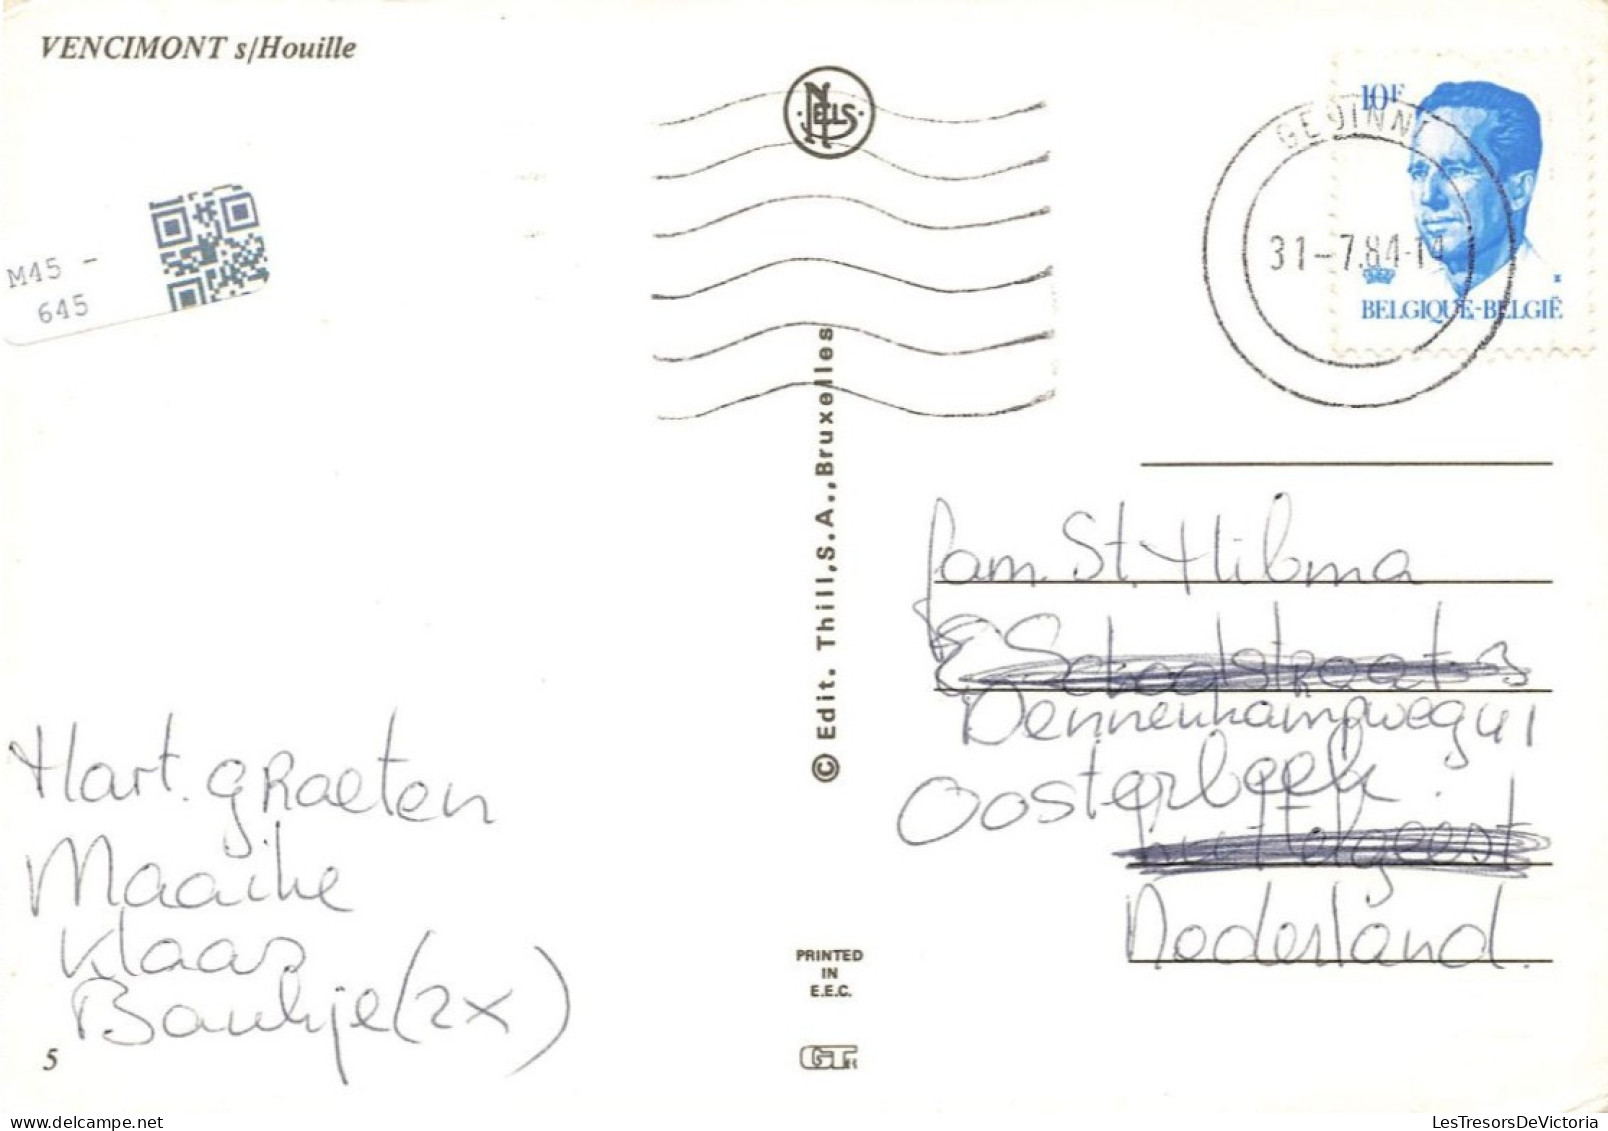 VENCIMONT s/Houille
NELS
10F
GEDINNE
31-7.84-14
BELGIQUE-BELGIË
M45 -
645
© Edit. Thill, S.A., Bruxelles
Fam. St. Hibma
Schoolstraat 3
Dennenkampweg 41
Oosterbeek.
Uitgeest
Nederland.
Hart. groeten
Maaike
Klaas
Baukje (2x)
PRINTED
IN
E.E.C.
5
LesTresorsDeVictoria